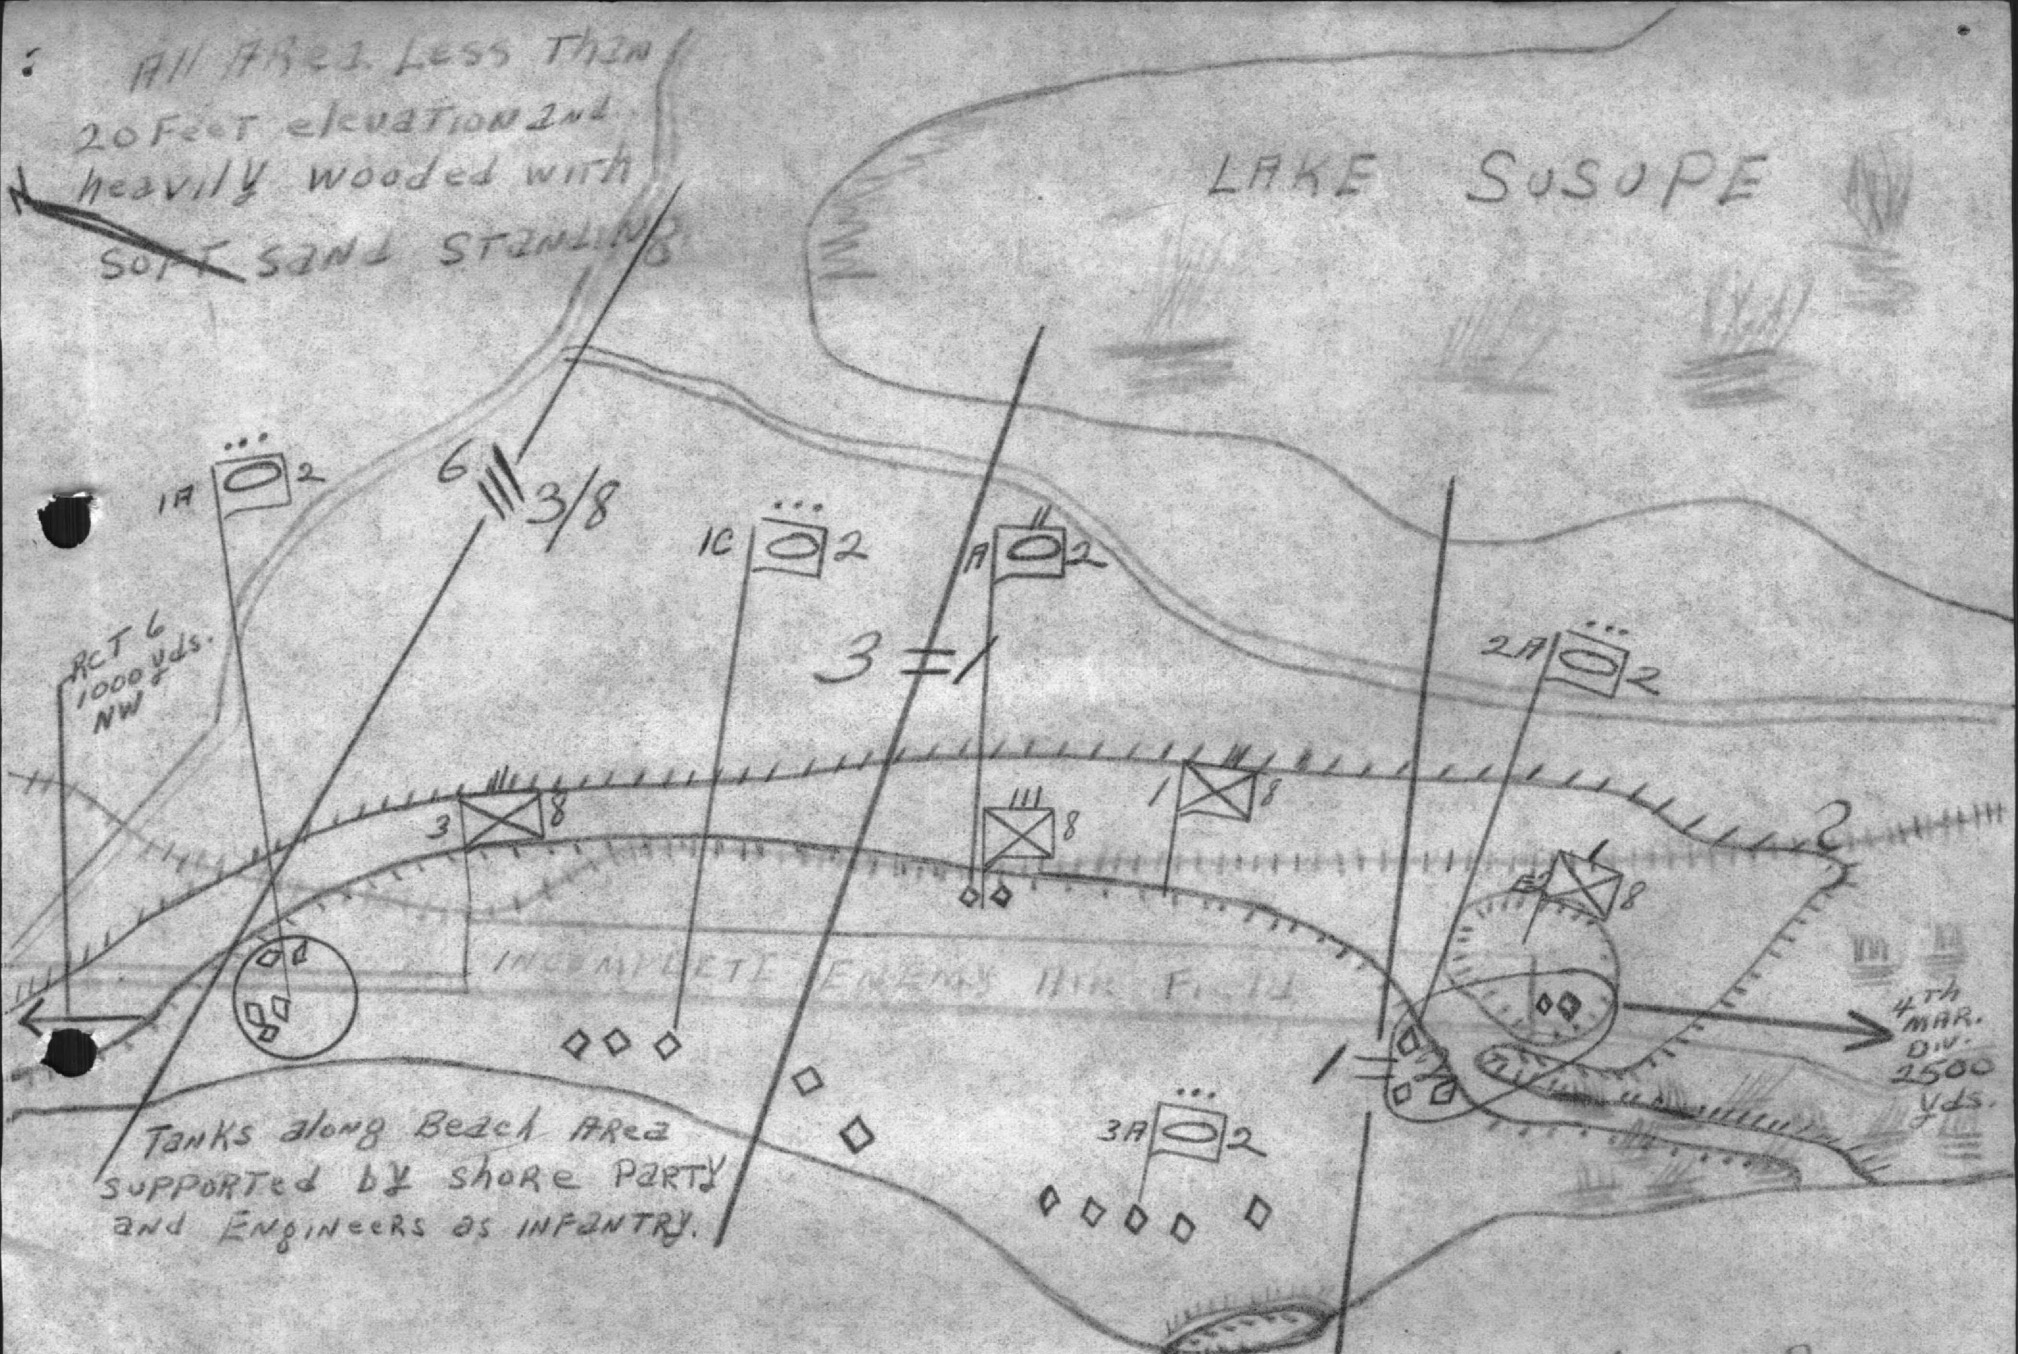 All Area Less Than
20 Feet elevation and
heavily wooded with
Soft Sand Standing
LAKE SUSUPE
1A 2
6
3/8
1C 2
A 2
RCT 6
1000 yds.
NW
3
2A 2
3 8
8
1 8
2
8
INCOMPLETE ENEMY Air Field
4th
MAR.
DIV.
2500
yds.
Tanks along Beach Area
supported by shore Party
and Engineers as infantry.
3A 2